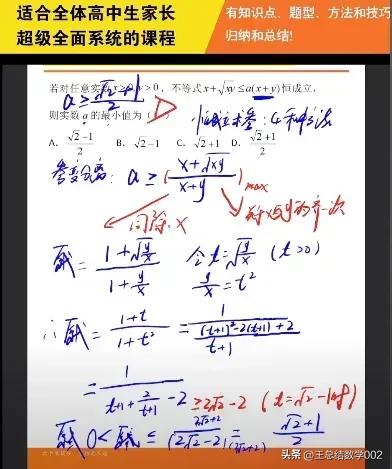 适合全体高中生家长
超级全面系统的课程
有知识点、题型、方法和技巧
归纳和总结!
若对任意实数x>0,y>0,不等式x+√xy≤a(x+y)恒成立,
a≥(√2+1)/2
则实数 a 的最小值为( D
恒成立求参:4种方法
A. (√2-1)/2 B. √2-1 C. √2+1 D. (√2+1)/2
参变分离: a≥((x+√xy)/(x+y))max
同除x
齐次
原式=(1+√(y/x))/(1+y/x) 令t=√(y/x) (t>0)
y/x=t²
∴原式=(1+t)/(1+t²)=1/(((t+1)²-2(t+1)+2)/(t+1))
=1/(t+1+2/(t+1)-2) ≥2√2-2 (t=√2-1时)
原式 0<原式≤(2√2+2)/((2√2-2)(2√2+2))=(√2+1)/2
头条 @王总结数学002